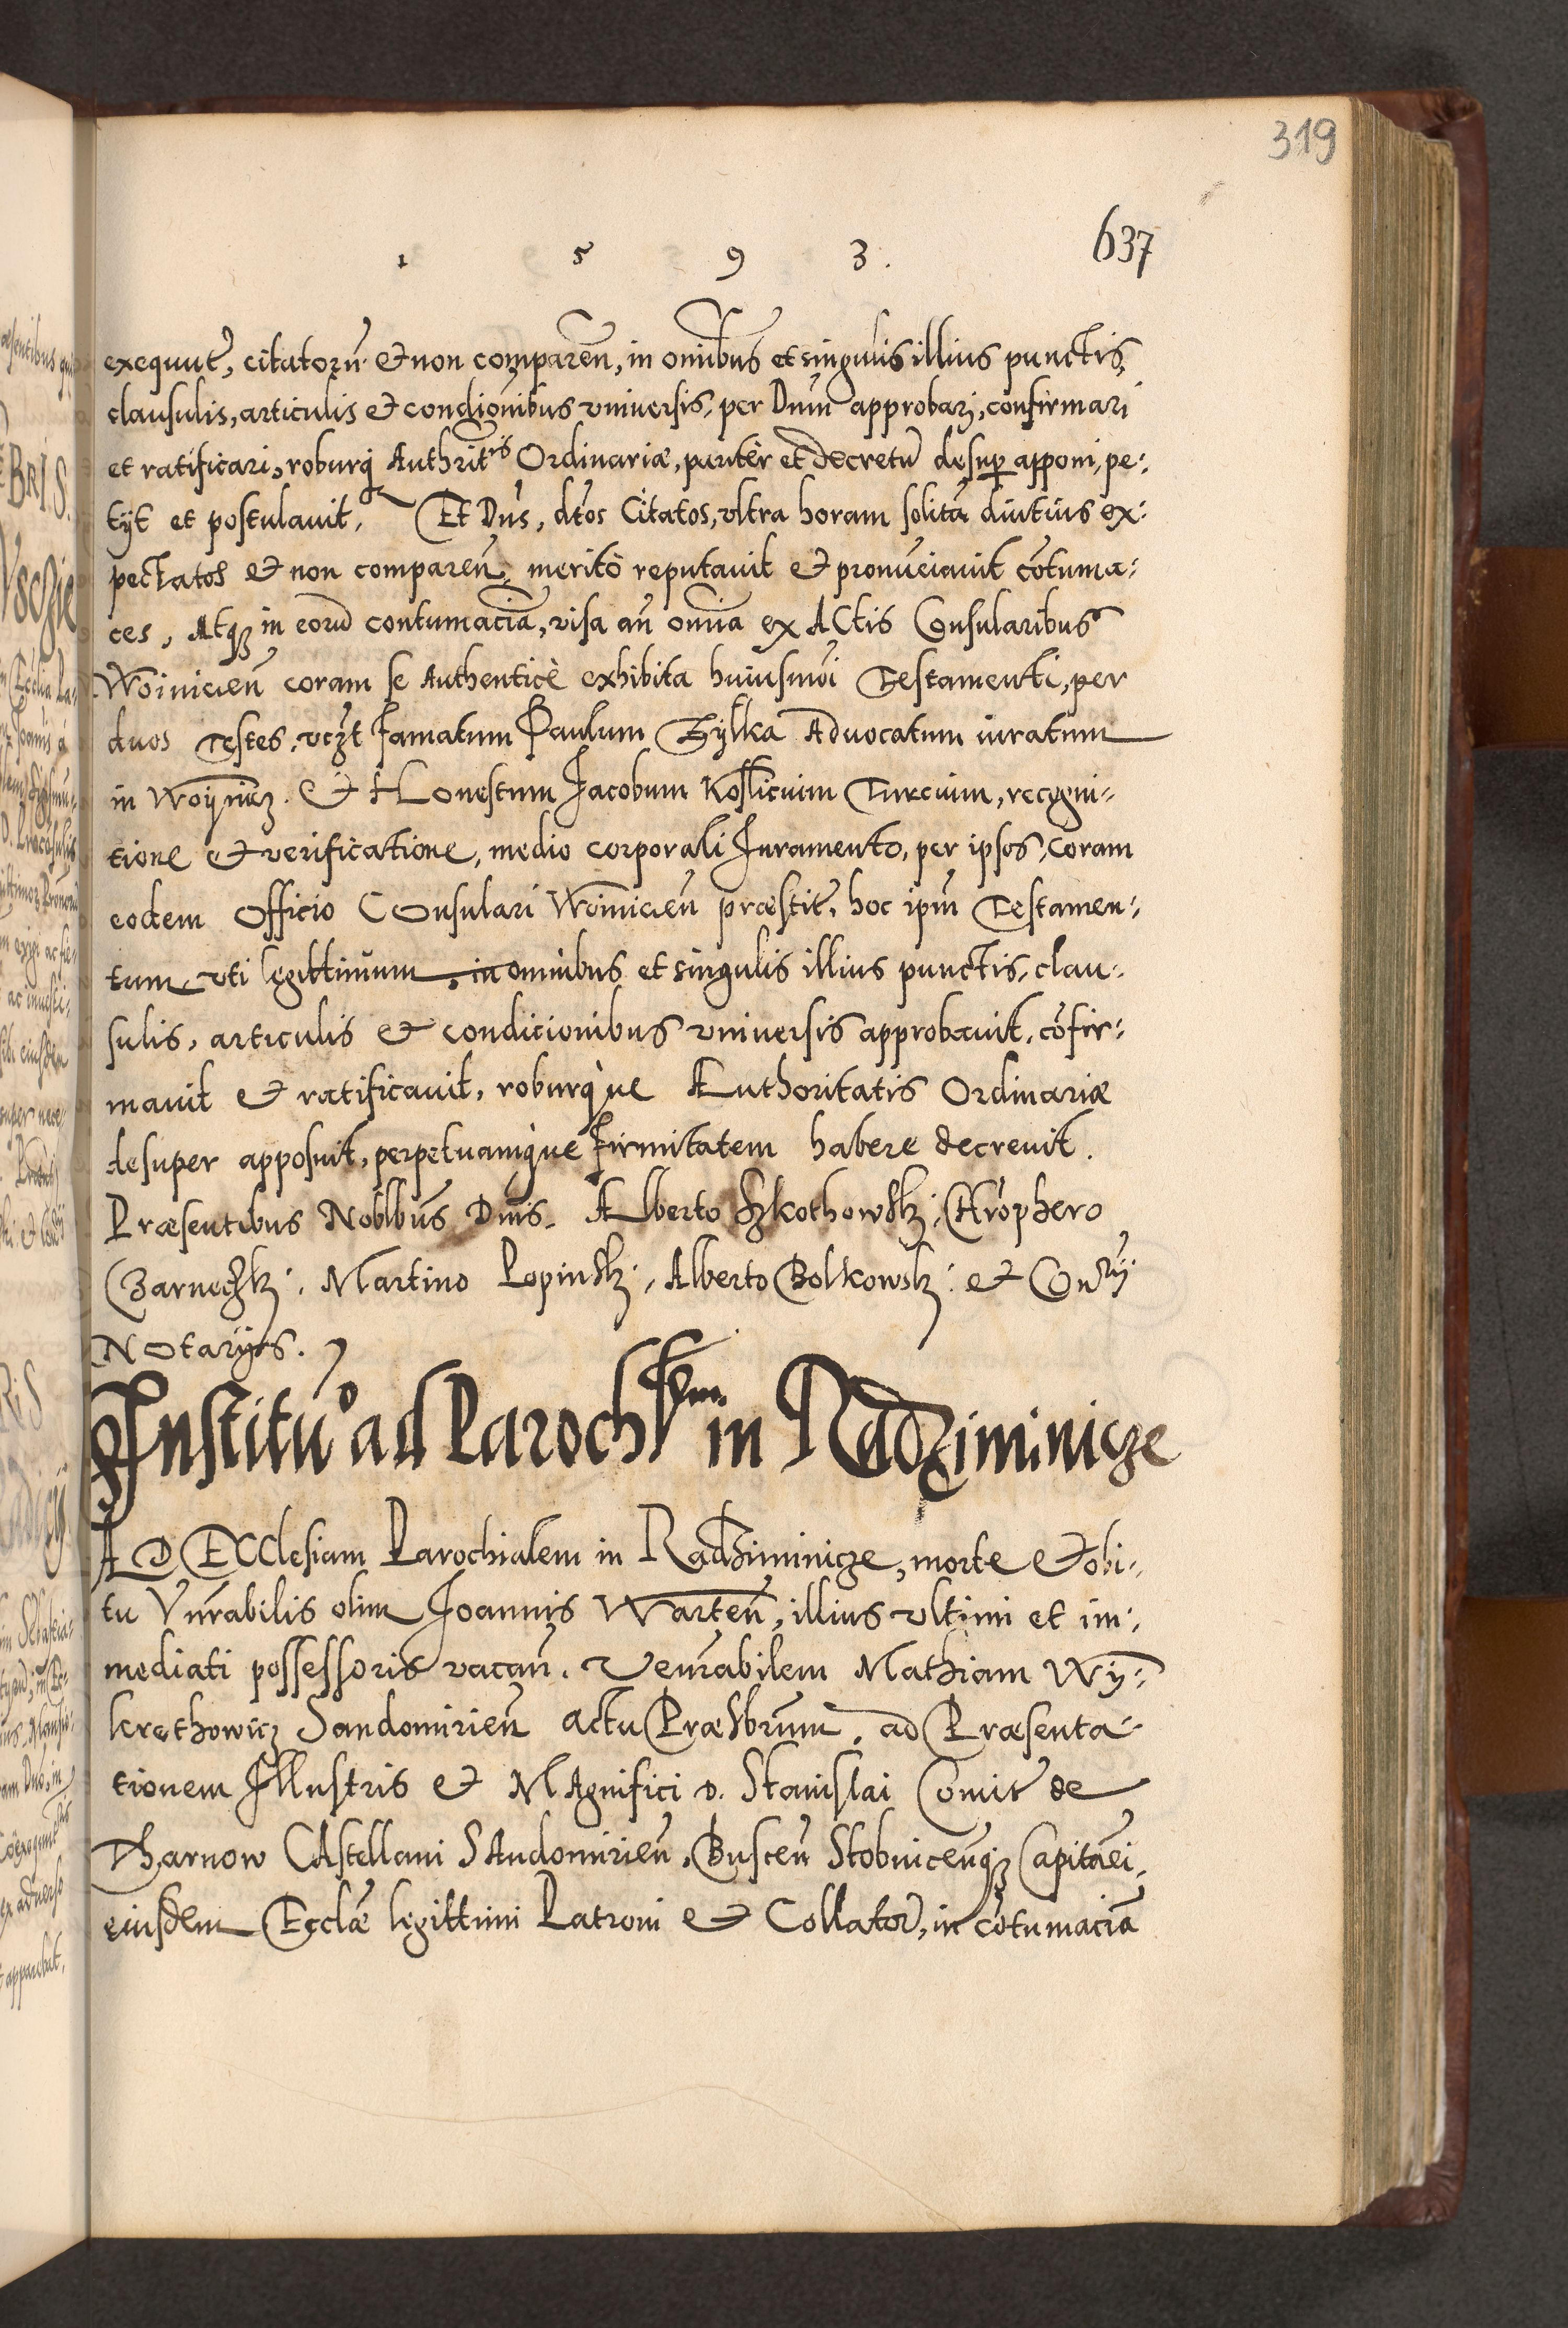 319
637
1 5 9 3.
exequut̃, citatorũ et non comparẽn, in omĩbus et singulis illius punctis,
clausulis, articulis et condĩonibus vniversis, per Dnũm approbari, confirmari
et ratificari, roburq̃ Authrit̃is Ordinariæ, pariter et decretũ desuper apponi, pe-
tÿt et postulavit. Et Dñs, dtos Citatos, vltra horam solitã diutius ex-
pectatos et non comparẽn, meritò reputavit et pronũciavit cõtuma-
ces, Atqꝫ in eorũ contumaciã, visa añ omnia ex ACtis Consularibus
Woiniciẽn coram se Authenticè exhibita huiusmõi Testamenti, per
duos Testes, vcꝫt Famatum Paulum Zÿlka Advocatum iuratum
in Woÿnicz. et Honestum Jacobum Koslicium Turcium, recogni-
tione et verificatione, medio corporali Juramento, per ipsos, coram
eodem Officio COnsulari Woiniciẽn præstit̃, hoc ipm̃ Testamen-
tum, vti legittimum, in omnibus et singulis illius punctis, clau-
sulis, articulis et condicionibus vniversis approbavit, cõfir-
mavit et ratificavit, roburq̀ue Authoritatis Ordinariæ
desuper apposuit, perpetuamq̀ue firmitatem habere decrevit.
Præsentibus Noblbũs Dnĩs. Alberto Szkothowskj, Chrõphero
Czarneczkj, Martino Lopinskj, Alberto Bolkowskj et Conrÿ
NOtarÿs.
Institũo ad Paroch̃lem in Radziminicze
AD ECClesiam Parochialem in Radziminicze, morte et obi-
tu Vnr̃abilis olim Joannis Wartẽn, illius vltimi et im-
mediati possessoris vacañ. Venr̃abilem Mathiam Wÿ-
krethowicz Sandomiriẽn actu Præsbrũm, ad Præsenta-
tionem Illustris et MAgnifici D. Stanislai Comit̃ de
Tharnow CAstellani SAndomiriẽn, Buscẽn Stobnicẽnqꝫ Capitãei,
eiusdem Ecclæ̃ legittimi Patroni et Collator̃, in cõtumaciã